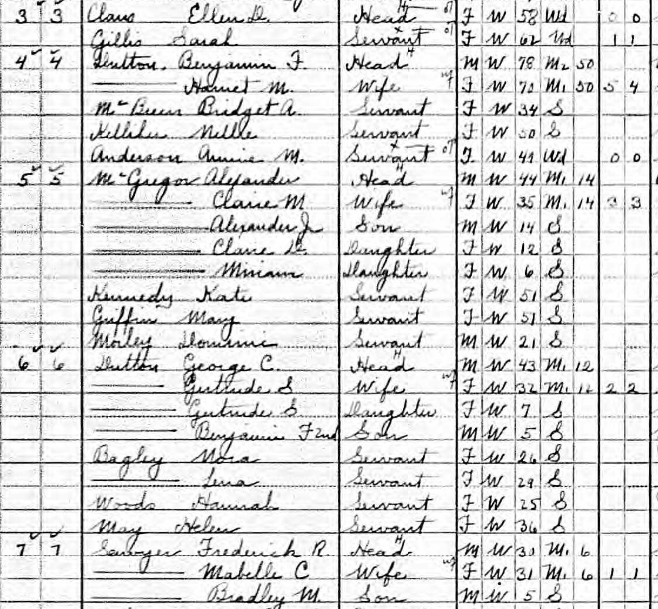 3 3 Claus Ellen D. Head F W 58 Wd 0 0
Gillis Sarah Servant F W 62 Wd 1 1
4 4 Dutton, Benjamin F. Head M W 78 M2 50
Harriet M. Wife F W 70 M1 50 5 4
Bridget A. Servant F W 34 S
Kelliher Nellie Servant F W 50 S
Anderson Annie M. Servant F W 49 Wd 0 0
5 5 McGregor Alexander Head M W 44 M1 14
Clare M Wife F W 35 M1 14 3 3
Alexander Jr Son M W 14 S
Clare D. Daughter F W 12 S
Miriam Daughter F W 6 S
Kennedy Kate Servant F W 51 S
Griffin Mary Servant F W 51 S
Morley Dominic Servant M W 21 S
6 6 Dutton George C. Head M W 43 M1 12
Gertrude S Wife F W 32 M1 12 2 2
Gertrude S. Daughter F W 7 S
Benjamin F 2nd Son M W 5 S
Bagley Nora Servant F W 26 S
Lena Servant F W 29 S
Woods Hannah Servant F W 25 S
May Helen Servant F W 36 S
7 7 Sawyer Frederick R. Head M W 30 M1 6
Mabelle C Wife F W 31 M1 6 1 1
Bradley M. Son M W 5 S